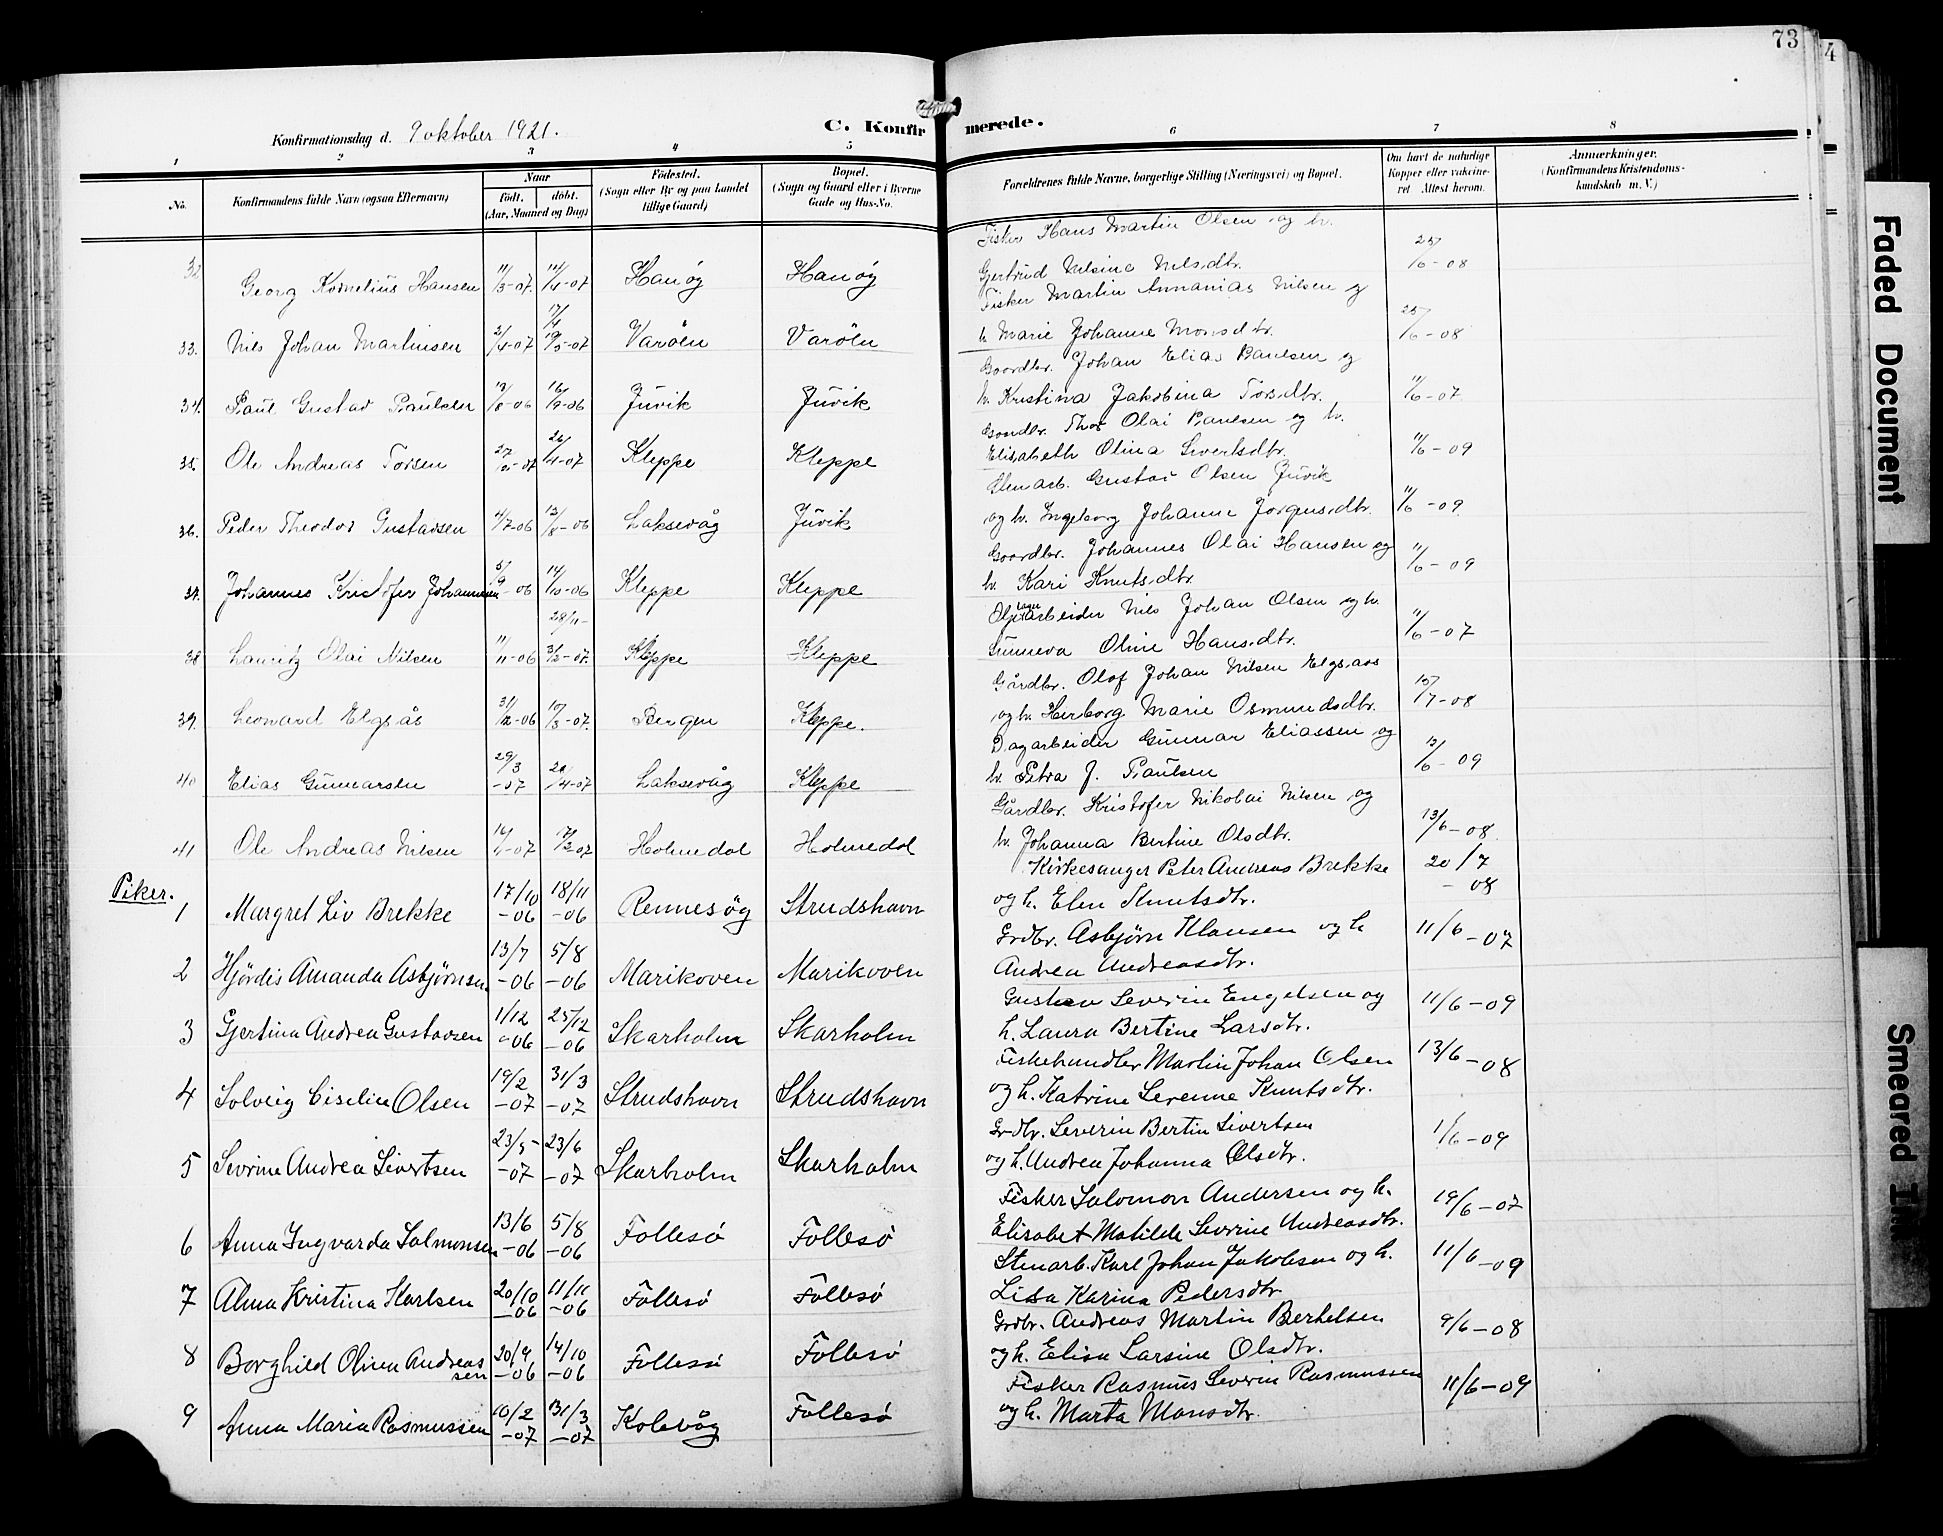 73
4
Konfirmationsdag d. 9 oktober 1921.
C. Konfirmerede.
1 2 3 4 5 6 7 8
No.
Konfirmandens fulde Navn (ogsaa Efternavn)
Naar
født. døbt.
(Aar, Maaned og Dag)
Fødested.
(Sogn eller By og paa Landet
tillige Gaard)
Bopæl.
(Sogn og Gaard eller i Byerne
Gade og Hus-No.
Forældrenes fulde Navne, borgerlige Stilling (Næringsvei) og Bopæl.
Om havt de naturlige
Kopper eller vakcine-
ret Attest herom.
Anmærkninger.
(Konfirmandens Kristendoms-
kundskab m. V.)
32 Georg Kornelius Hansen 11/3-07. 14/4-07 Hanøy Hanøy
Fisker Hans Martin Olsen og h.
Gjertrud Nilsine Nilsdtr. 25/6-08
33. Nils Johan Martinsen 2/4-07 Varöln Varöln
Fisker Martin Annanias Nilsen og
h Marie Johanne Monsdtr. 25/6-08
34. Paul Gustav Paulsen 19/8-06 16/9-06 Juvik Juvik
Gaardbr. Johan Elias Paulsen og
h. Kristina Jakobina Torsdtr. 11/6-07
35. Ole Andreas Torsen 27/2-07 /4-07 Kleppe Kleppe
Gardbr. Thor Olai Paulsen og h.
Elisabeth Olina Sivertsdtr. 11/6-09
36. Peder Theodor Gustavsen 4/7-06 13/8-06 Laksevåg Juvik
Stenarb. Gustav Olsen Juvik
og h. Ingeborg Johanne Jørgensdtr. 11/6-09
37. Johannes Kristofer Johannesen 5/9-06 14/10-06 Kleppe Kleppe
Gaardbr. Johannes Olai Hansen og
h. Kari Knutsdtr. 11/6-09
38 Lauritz Olai Nilsen 11/11-06 28/11- 3/2-07. Kleppe Kleppe
Nils Johan Olsen og h.
Gunneva Oline Hansdtr. 11/6-07
39. Leonard Elgsås 31/12-06 17/3-07. Bergen Kleppe.
Gårdbr. Olof Johan Nilsen Elgsaas
og h. Herborg Marie Osmundsdtr. 15/7-08
40 Elias Gunnarsen 29/3-07 /4-07 Laksevåg Kleppe
Dagarbeider Gunnar Eliassen og
h. Petra J. Paulsen 13/6-09
41 Ole Andreas Nilsen /1-07 17/2-07 Holmedal Holmedal
Gårdbr. Kristofer Nikolai Nilsen og
h. Johanna Bertine Olsdtr. 13/6-08.
Piker.
1 Margret Liv Brekke 17/10-06 18/11-06 Rennesøy Strudshavn
Kirkesanger Peter Andreas Brekke
og h. Elen Knutsdtr. 20/7-08
2 Hjördis Amanda Asbjørnsen 13/7-06 5/8-06 Marikoven Marikoven
Grdbr. Asbjørn Klausen og h
Andrea Andreasdtr. 11/6-07
3 Gjertina Andrea Gustavsen 1/12-06 25/12-06 Skarholm Skarholm
Gustav Severin Engelsen og
h. Laura Bertine Larsdtr. 11/6-09
4 Solveig Ciselie Olsen 19/2-07 31/3-07 Strudshavn Strudshavn
Fiskehandler Martin Johan Olsen
og h. Katrine Serenne Knutsdtr. 13/6-08
5 Sevrine Andrea Sivertsen 23/5-07 23/6-07 Skarholm Skarholm
Grdbr. Severin Bertin Sivertsen
og h. Andrea Johanna Olsdtr. 1/6-09
6 Anna Ingvarda Salmonsen 13/6-06 5/8-06 Follesø Follesø
Fisker Salomon Andersen og h.
Elisabet Matilde Sevrine Andreasdtr. 19/6-07
7 Alma Kristina Karlsen 20/10-06 11/11-06 Follesø Follesø
Stenarb. Karl Johan Jakobsen og h.
Lisa Karina Pedersdtr 11/6-09
8 Borghild Olivia Andreassen 20/9-06 14/10-06 Follesø Follesø
Grdbr. Andreas Martin Berthelsen
og h. Elisa Larsine Olsdtr. 9/6-08
9 Anna Maria Rasmussen 10/2-07 31/3-07 Kolevåg Follesø
Fisker Rasmus Severin Rasmussen
og h. Marta Monsdtr. 11/6-09
Faded Document
Smeared Ink